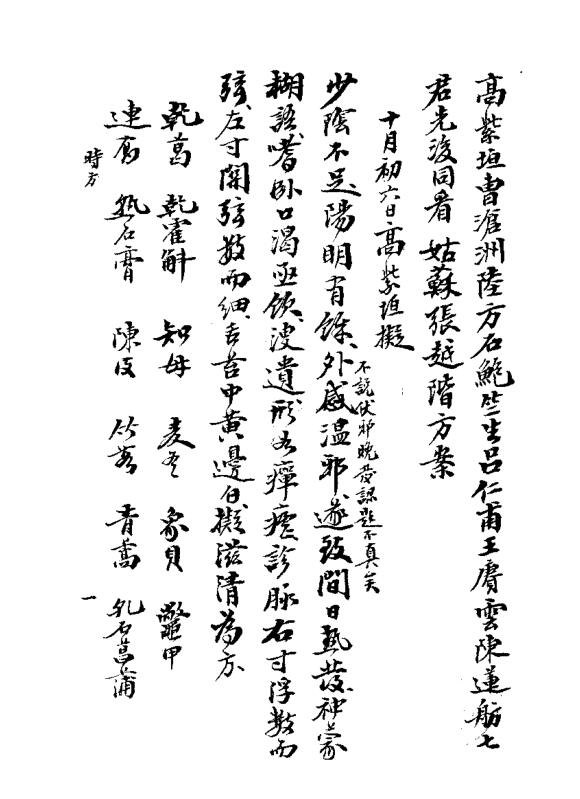 高紫垣曹滄洲陸方石鮑竺生呂仁甫王賡雲陳蓮舫七
君先後同看 姑蘇張越階方案
十月初六日高紫垣擬
不說伏邪晚發認題不真矣
少陰不足陽明有餘外感溫邪遂致間日熱發神蒙
糊語嗜卧口渴亟飲溲遺形如癉瘧診脉右寸浮數而
弦左寸關弦數而細舌苔中黃邊白擬滋清為方
乾葛 乾霍斛 知母 麦冬 象貝 鼈甲
連翹 熟石膏 陳皮 竹茹 青蒿 九石菖蒲 一
時方